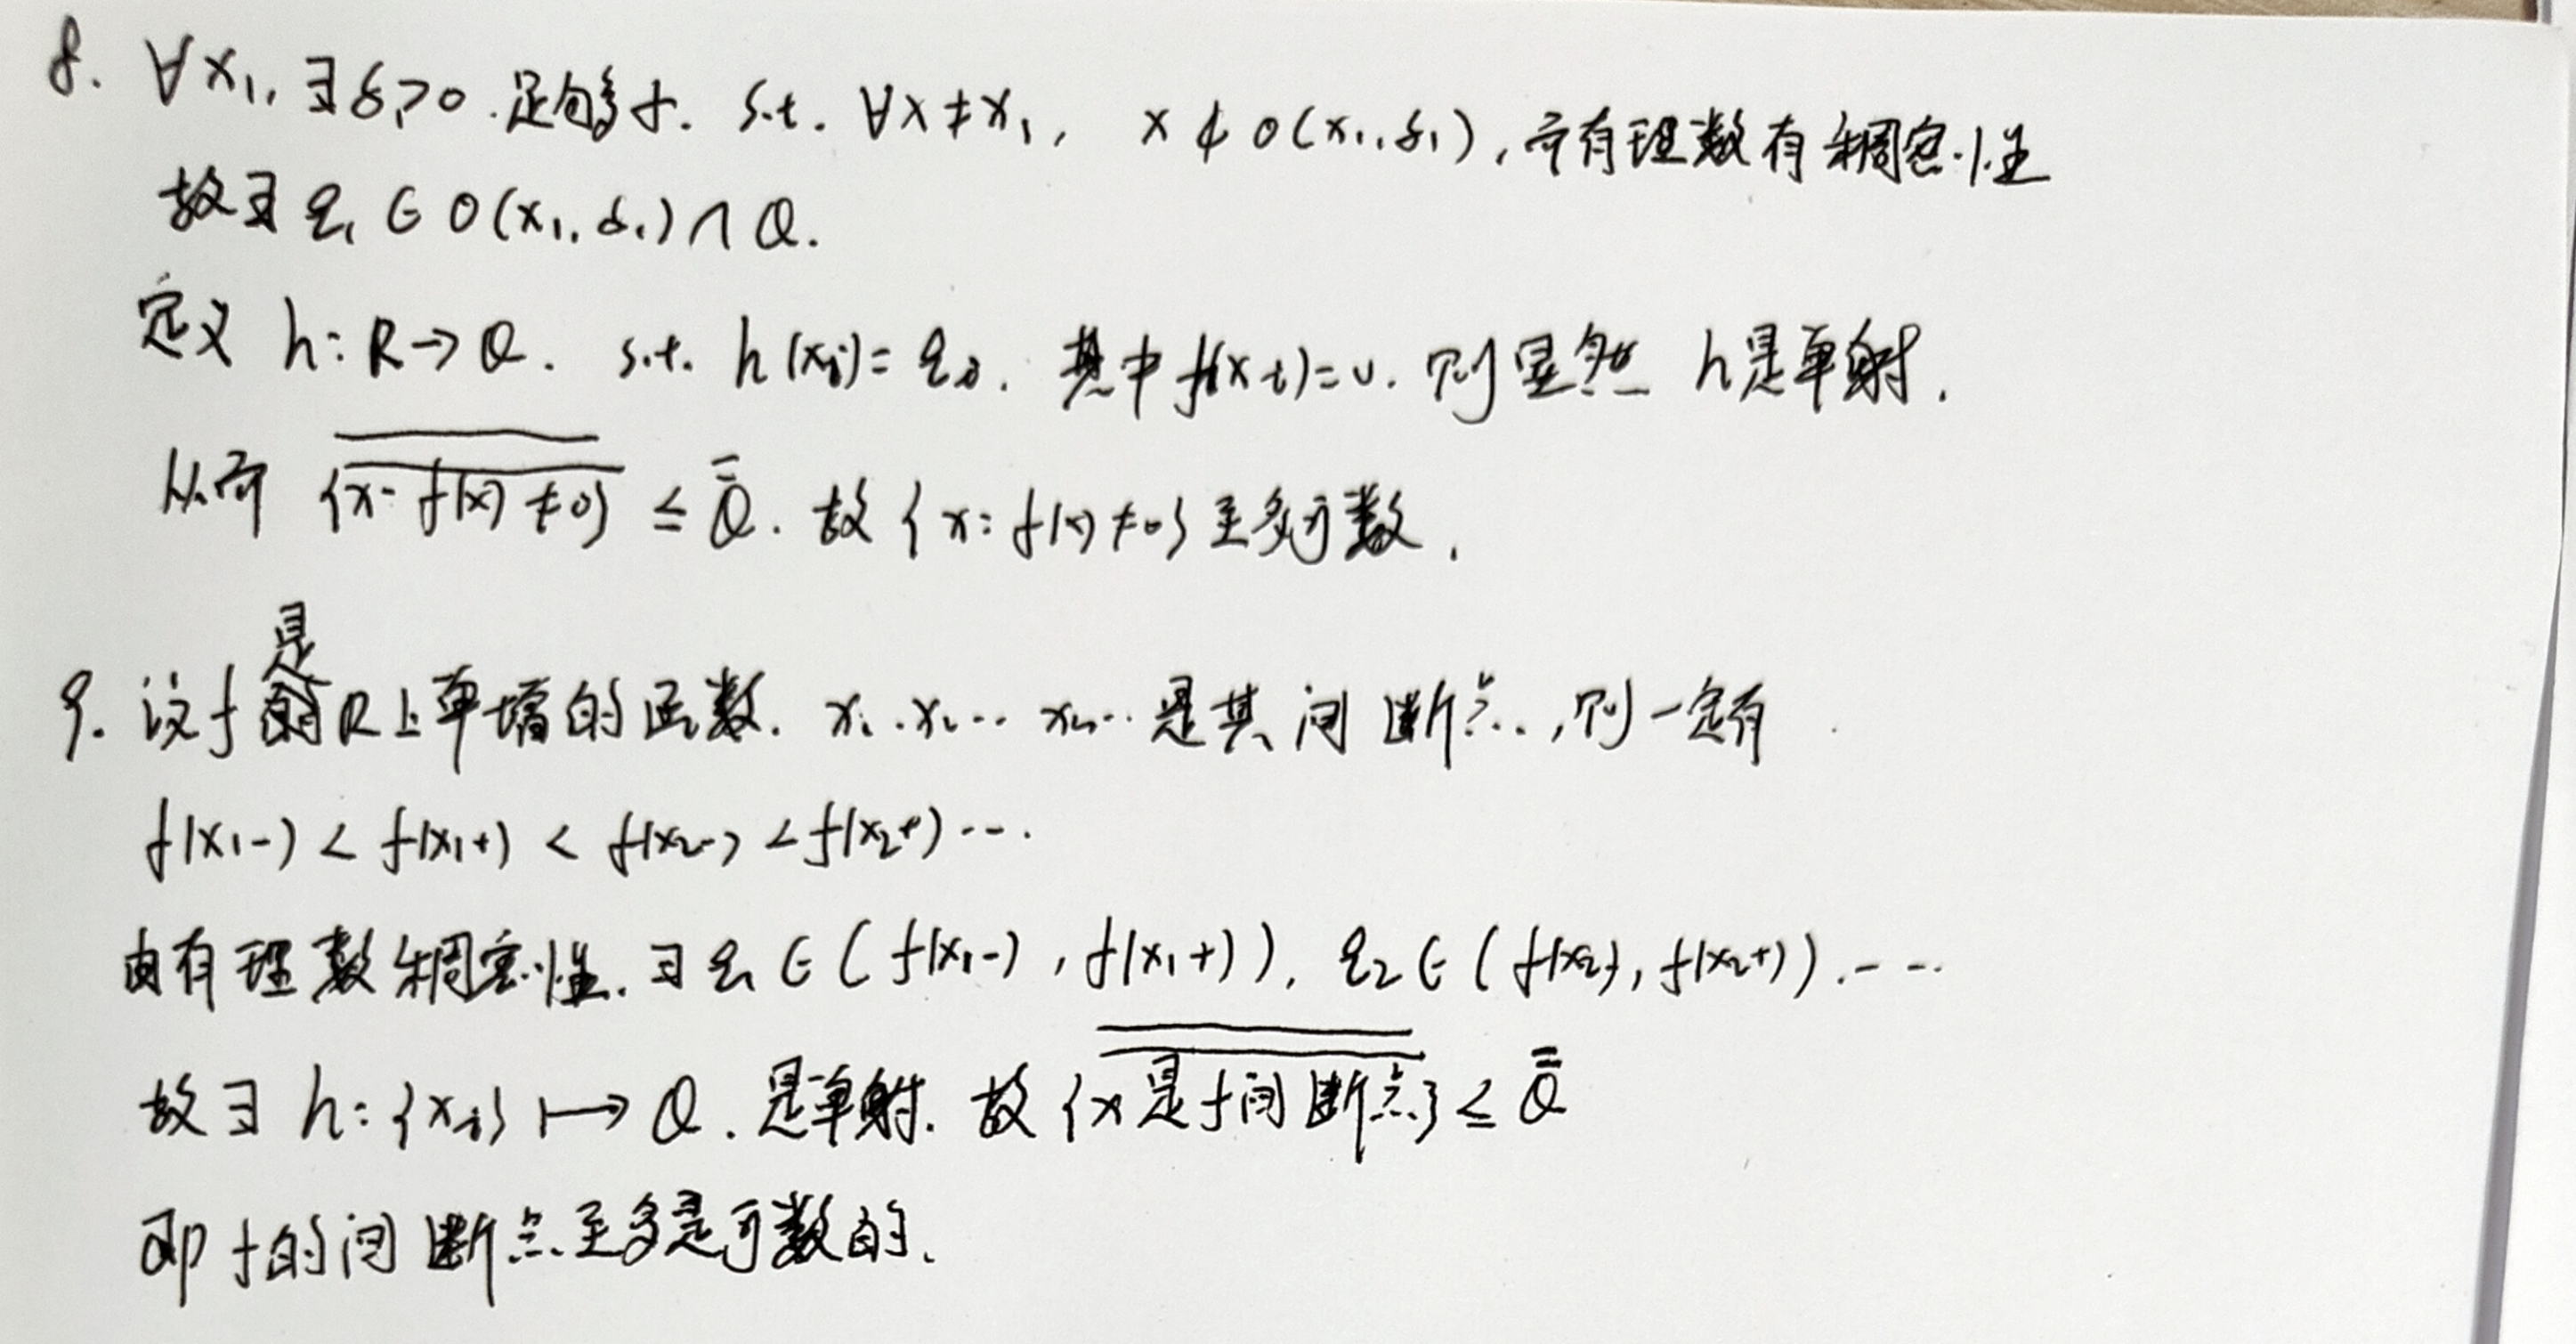 8. ∀x₁, ∃δ₁>0.足够小. s.t. ∀x≠x₁, x∉O(x₁,δ₁),而有理数有稠密性
故∃q₁∈O(x₁,δ₁)∩Q.
定义 h:R→Q. s.t. h(xᵢ)=qᵢ. 其中f(xᵢ)=0. 则显然 h是单射.
从而 {x: f(x)≠0} ≤ Q. 故{x: f(x)≠0}至多可数.
9. 设f是R上单增的函数. x₁.x₂… xₙ…是其间断点,则一定有
f(x₁-)<f(x₁+)<f(x₂-)<f(x₂+)….
由有理数稠密性.∃q₁∈(f(x₁-),f(x₁+)), q₂∈(f(x₂-),f(x₂+)).…
故∃ h:{xᵢ}↦Q.是单射. 故{x是f间断点}≤Q
即f的间断点至多是可数的.